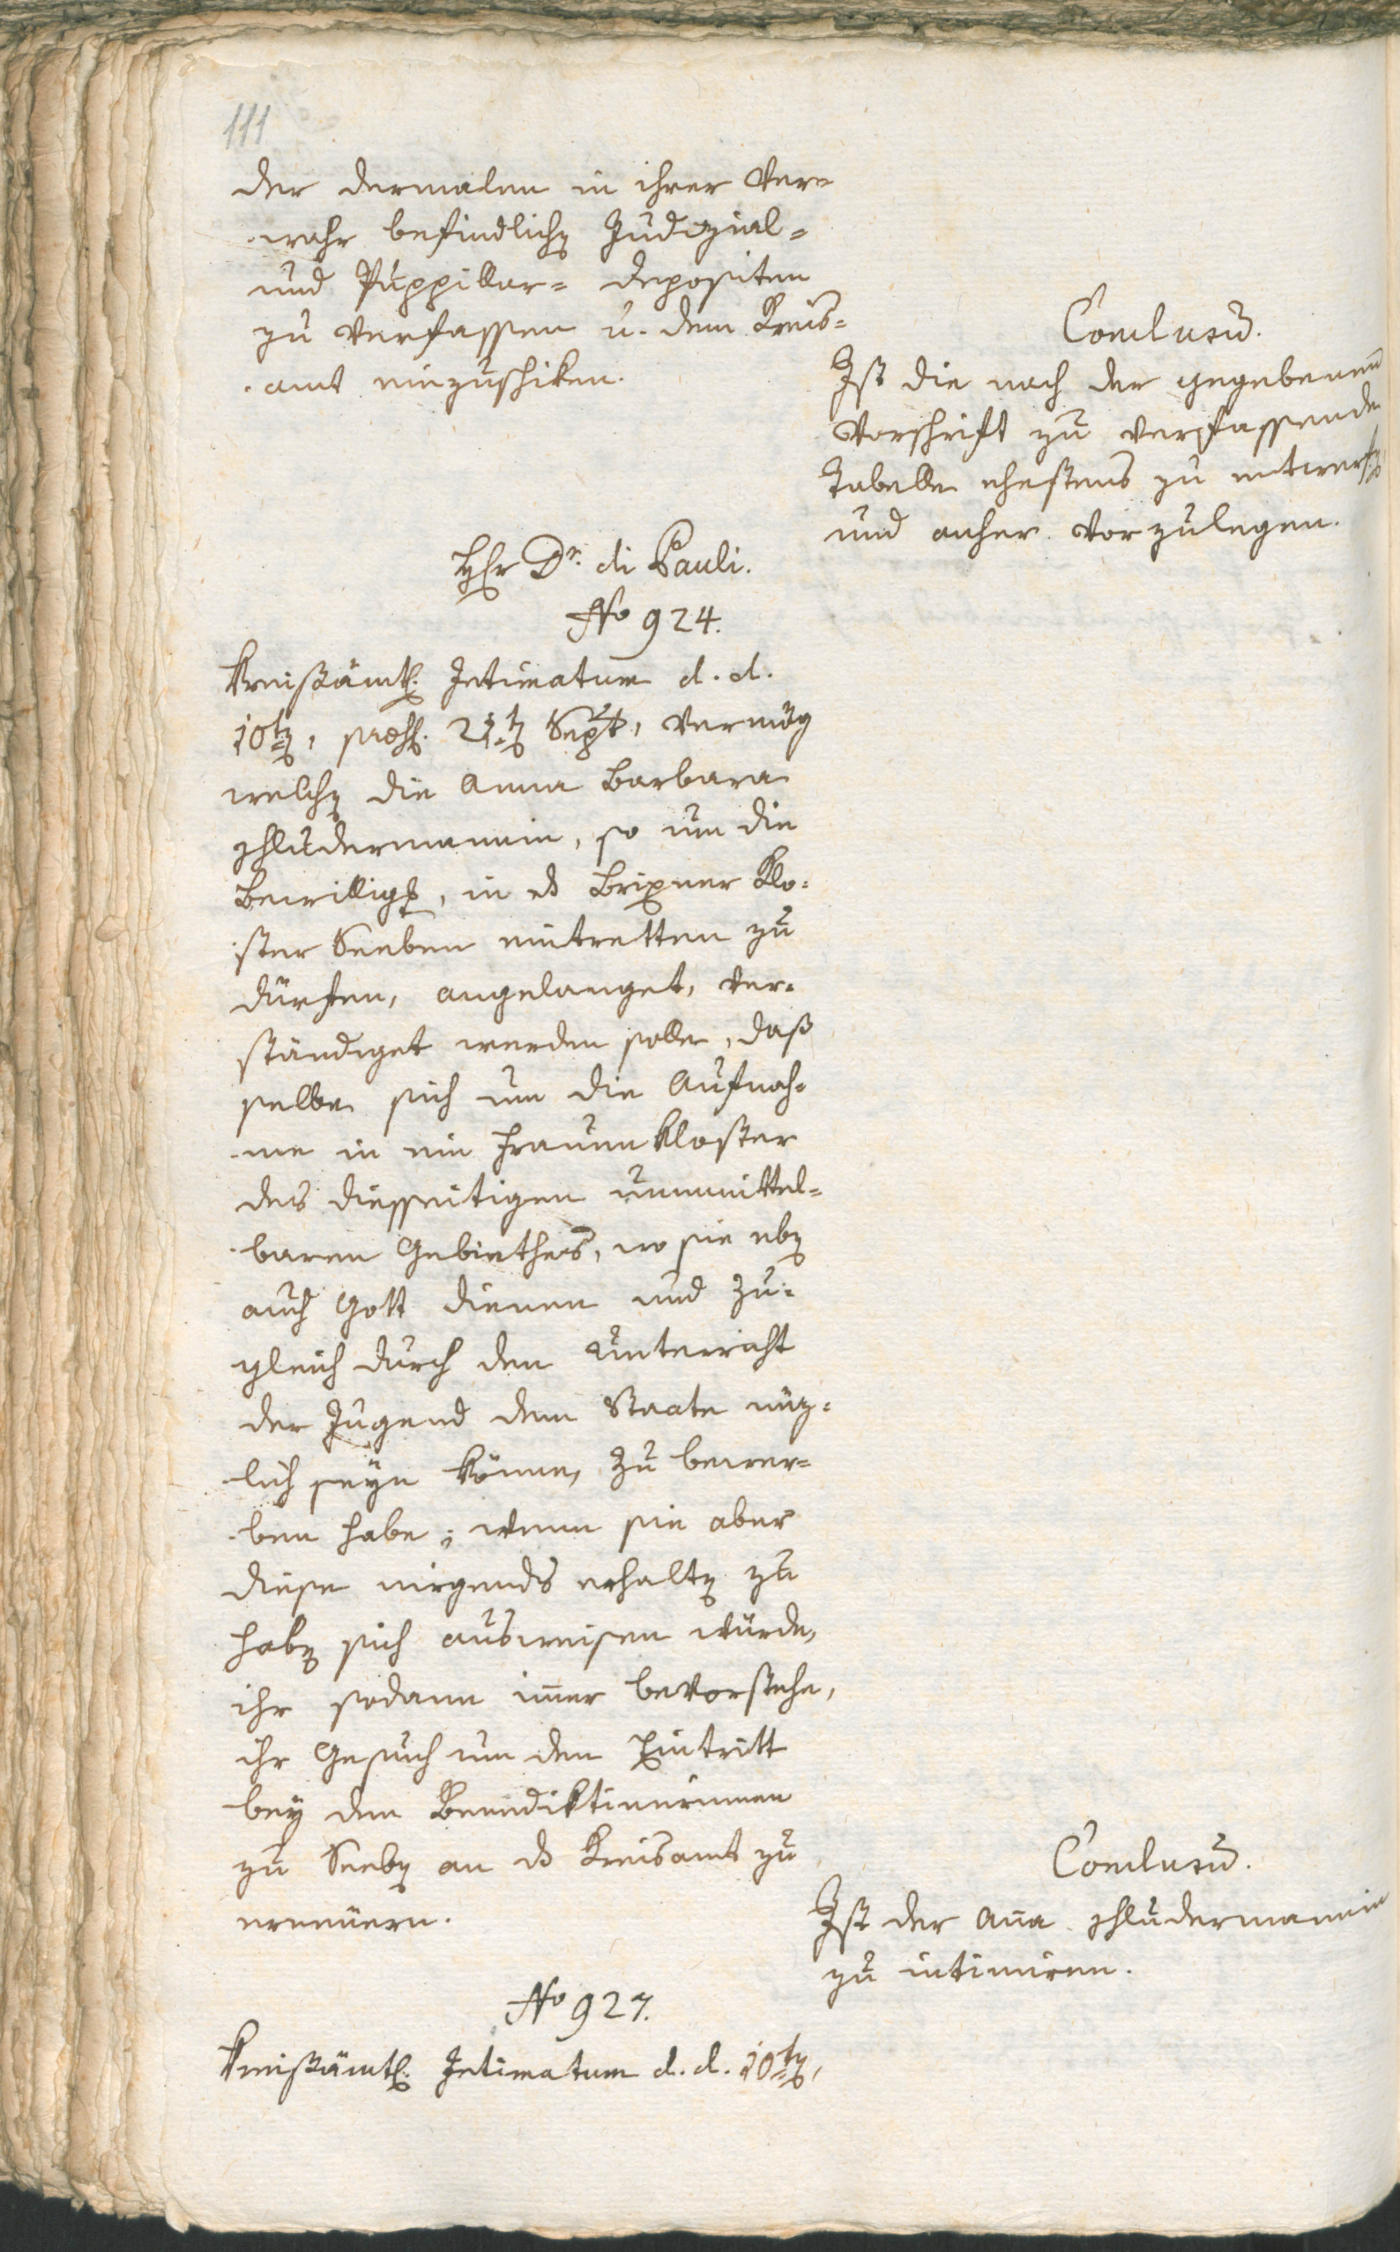 111
der dermalen in ihrer Ver=
wahr befindlichen Judizial=
und Puppillar= Depositen
zu verfassen u. dem Kreis=
amt einzuschiken.
Conclusum.
Ist die nach der gegebenen
Vorschrift zu verfassende
Tabelle ehestens zu entwerfen
und anher vorzulegen.
Herr Dr. di Pauli.
No 924.
Kreisämtl. Intimatum d. d.
10ten, praes. 21ten Sept., vermög
welchen die Anna Barbara
Schludermannin, so um die
Bewilligg, in das Brixner Klo=
ster Seeben eintretten zu
dürfen, angelanget, ver=
ständiget werden solle, daß
selbe sich um die Aufnah=
me in ein Frauenkloster
des diesseitigen unmittel=
baren Gebiethes, wo sie eben
auch Gott dienen und zu=
gleich durch den Unterricht
der Jugend dem Staate nüz=
lich seyn könne, zu bewer=
ben habe; wenn sie aber
diese nirgends erhalten zu
haben sich ausweisen würde,
ihr sodann immer bevorstehe,
ihr Gesuch um den Eintritt
bey den Benediktinerinnen
zu Seeben an das Kreisamt zu
erneuern.
Conclusum.
Ist der Anna Schludermannin
zu intimiren.
No 927.
Kreisämtl. Intimatum d. d. 10ten,